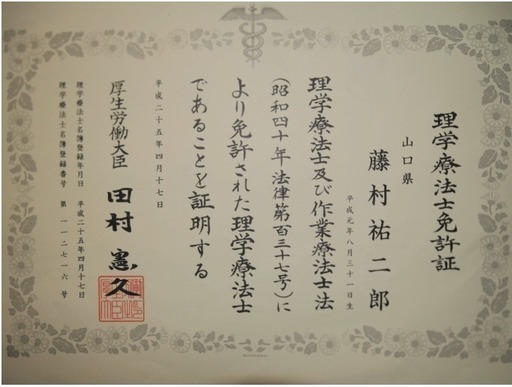 理学療法士免許証
山口県
藤村祐二郎
平成元年八月三十一日生
理学療法士及び作業療法士法
(昭和四十年法律第百三十七号)に
より免許された理学療法士
であることを証明する
平成二十五年四月十七日
厚生労働大臣 田村憲久
理学療法士名簿登録年月日 平成二十五年四月十七日
理学療法士名簿登録番号 第一一二七一六号